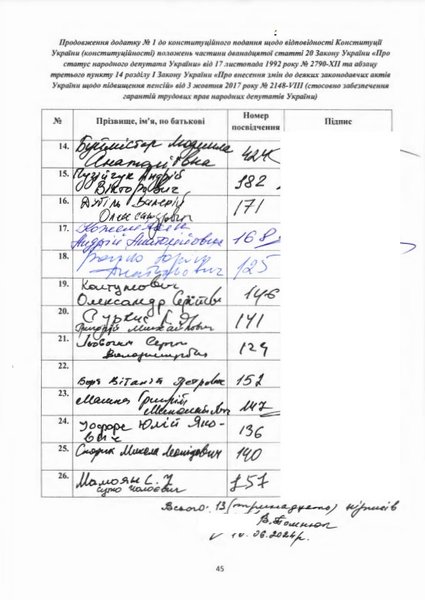 Продовження додатку № 1 до конституційного подання щодо відповідності Конституції
України (конституційності) положень частини дванадцятої статті 20 Закону України «Про
статус народного депутата України» від 17 листопада 1992 року № 2790-XII та абзацу
третього пункту 14 розділу I Закону України «Про внесення змін до деяких законодавчих актів
України щодо підвищення пенсій» від 3 жовтня 2017 року № 2148-VIII (стосовно забезпечення
гарантій трудових прав народних депутатів України)
№ Прізвище, ім'я, по батькові Номер посвідчення Підпис
14. Буймістер Людмила
Анатоліївна 424
15. Пузійчук Андрій
Вікторович 382
16. Дубіль Валерій
Олександрович 171
17. Кожем'якін
Андрій Анатолійович 168
18. Анатолійович 125
19. Колтунович
Олександр Сергійович 146
20. Суркіс
Григорій Михайлович 141
21. Львочкін Сергій
Володимирович 129
22. Борт Віталій Петрович 152
23. Мамка Григорій
Миколайович 147
24. Іоффе Юлій Яко-
вич 136
25. Скорик Микола Леонідович 140
26. Мамоян С. Ч
Суто Чолоєвич 257
Всього: 13 (тринадцять) підписів
06.2024р.
45